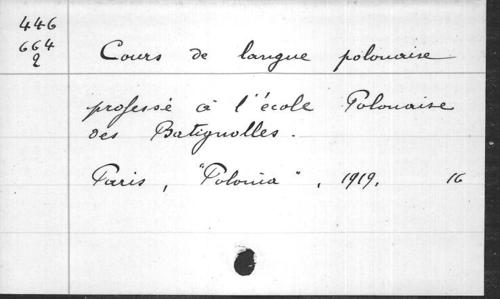 446
664
2
Cours de langue polonaise
professé à l'école Polonaise
des Batignolles.
Paris, "Polonia", 1919. 16